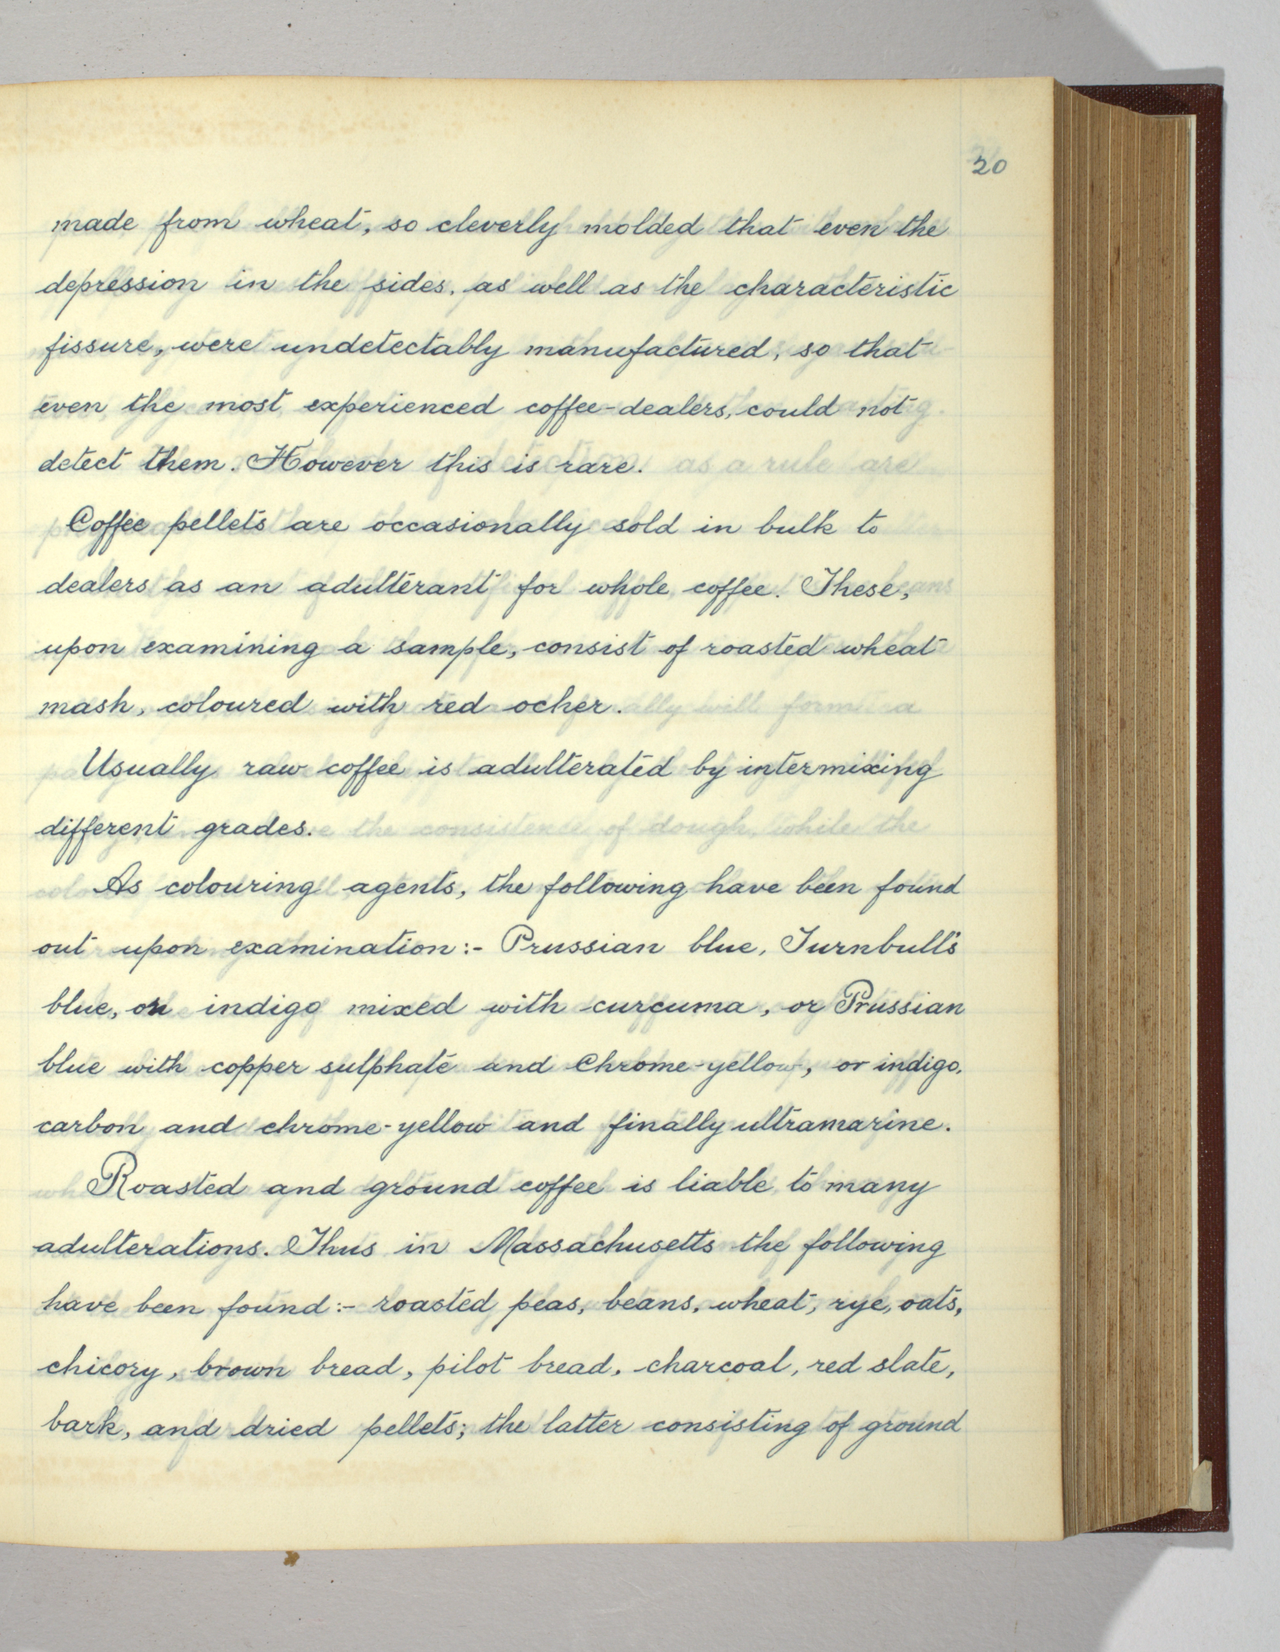 20
made from wheat, so cleverly molded that even the
depression in the sides, as well as the characteristic
fissure, were undetectably manufactured, so that
even the most experienced coffee-dealers, could not
detect them. However this is rare.
Coffee pellets are occasionally sold in bulk to
dealers as an adulterant for whole coffee. These,
upon examining a sample, consist of roasted wheat
mash, coloured with red ocher.
Usually raw coffee is adulterated by intermixing
different grades.
As colouring agents, the following have been found
out upon examination:- Prussian blue, Turnbull's
blue, or indigo mixed with curcuma, or Prussian
blue with copper sulphate and Chrome-yellow, or indigo,
carbon and chrome-yellow and finally ultramarine.
Roasted and ground coffee is liable to many
adulterations. Thus in Massachusetts the following
have been found:- roasted peas, beans, wheat, rye, oats,
chicory, brown bread, pilot bread, charcoal, red slate,
bark, and dried pellets; the latter consisting of ground